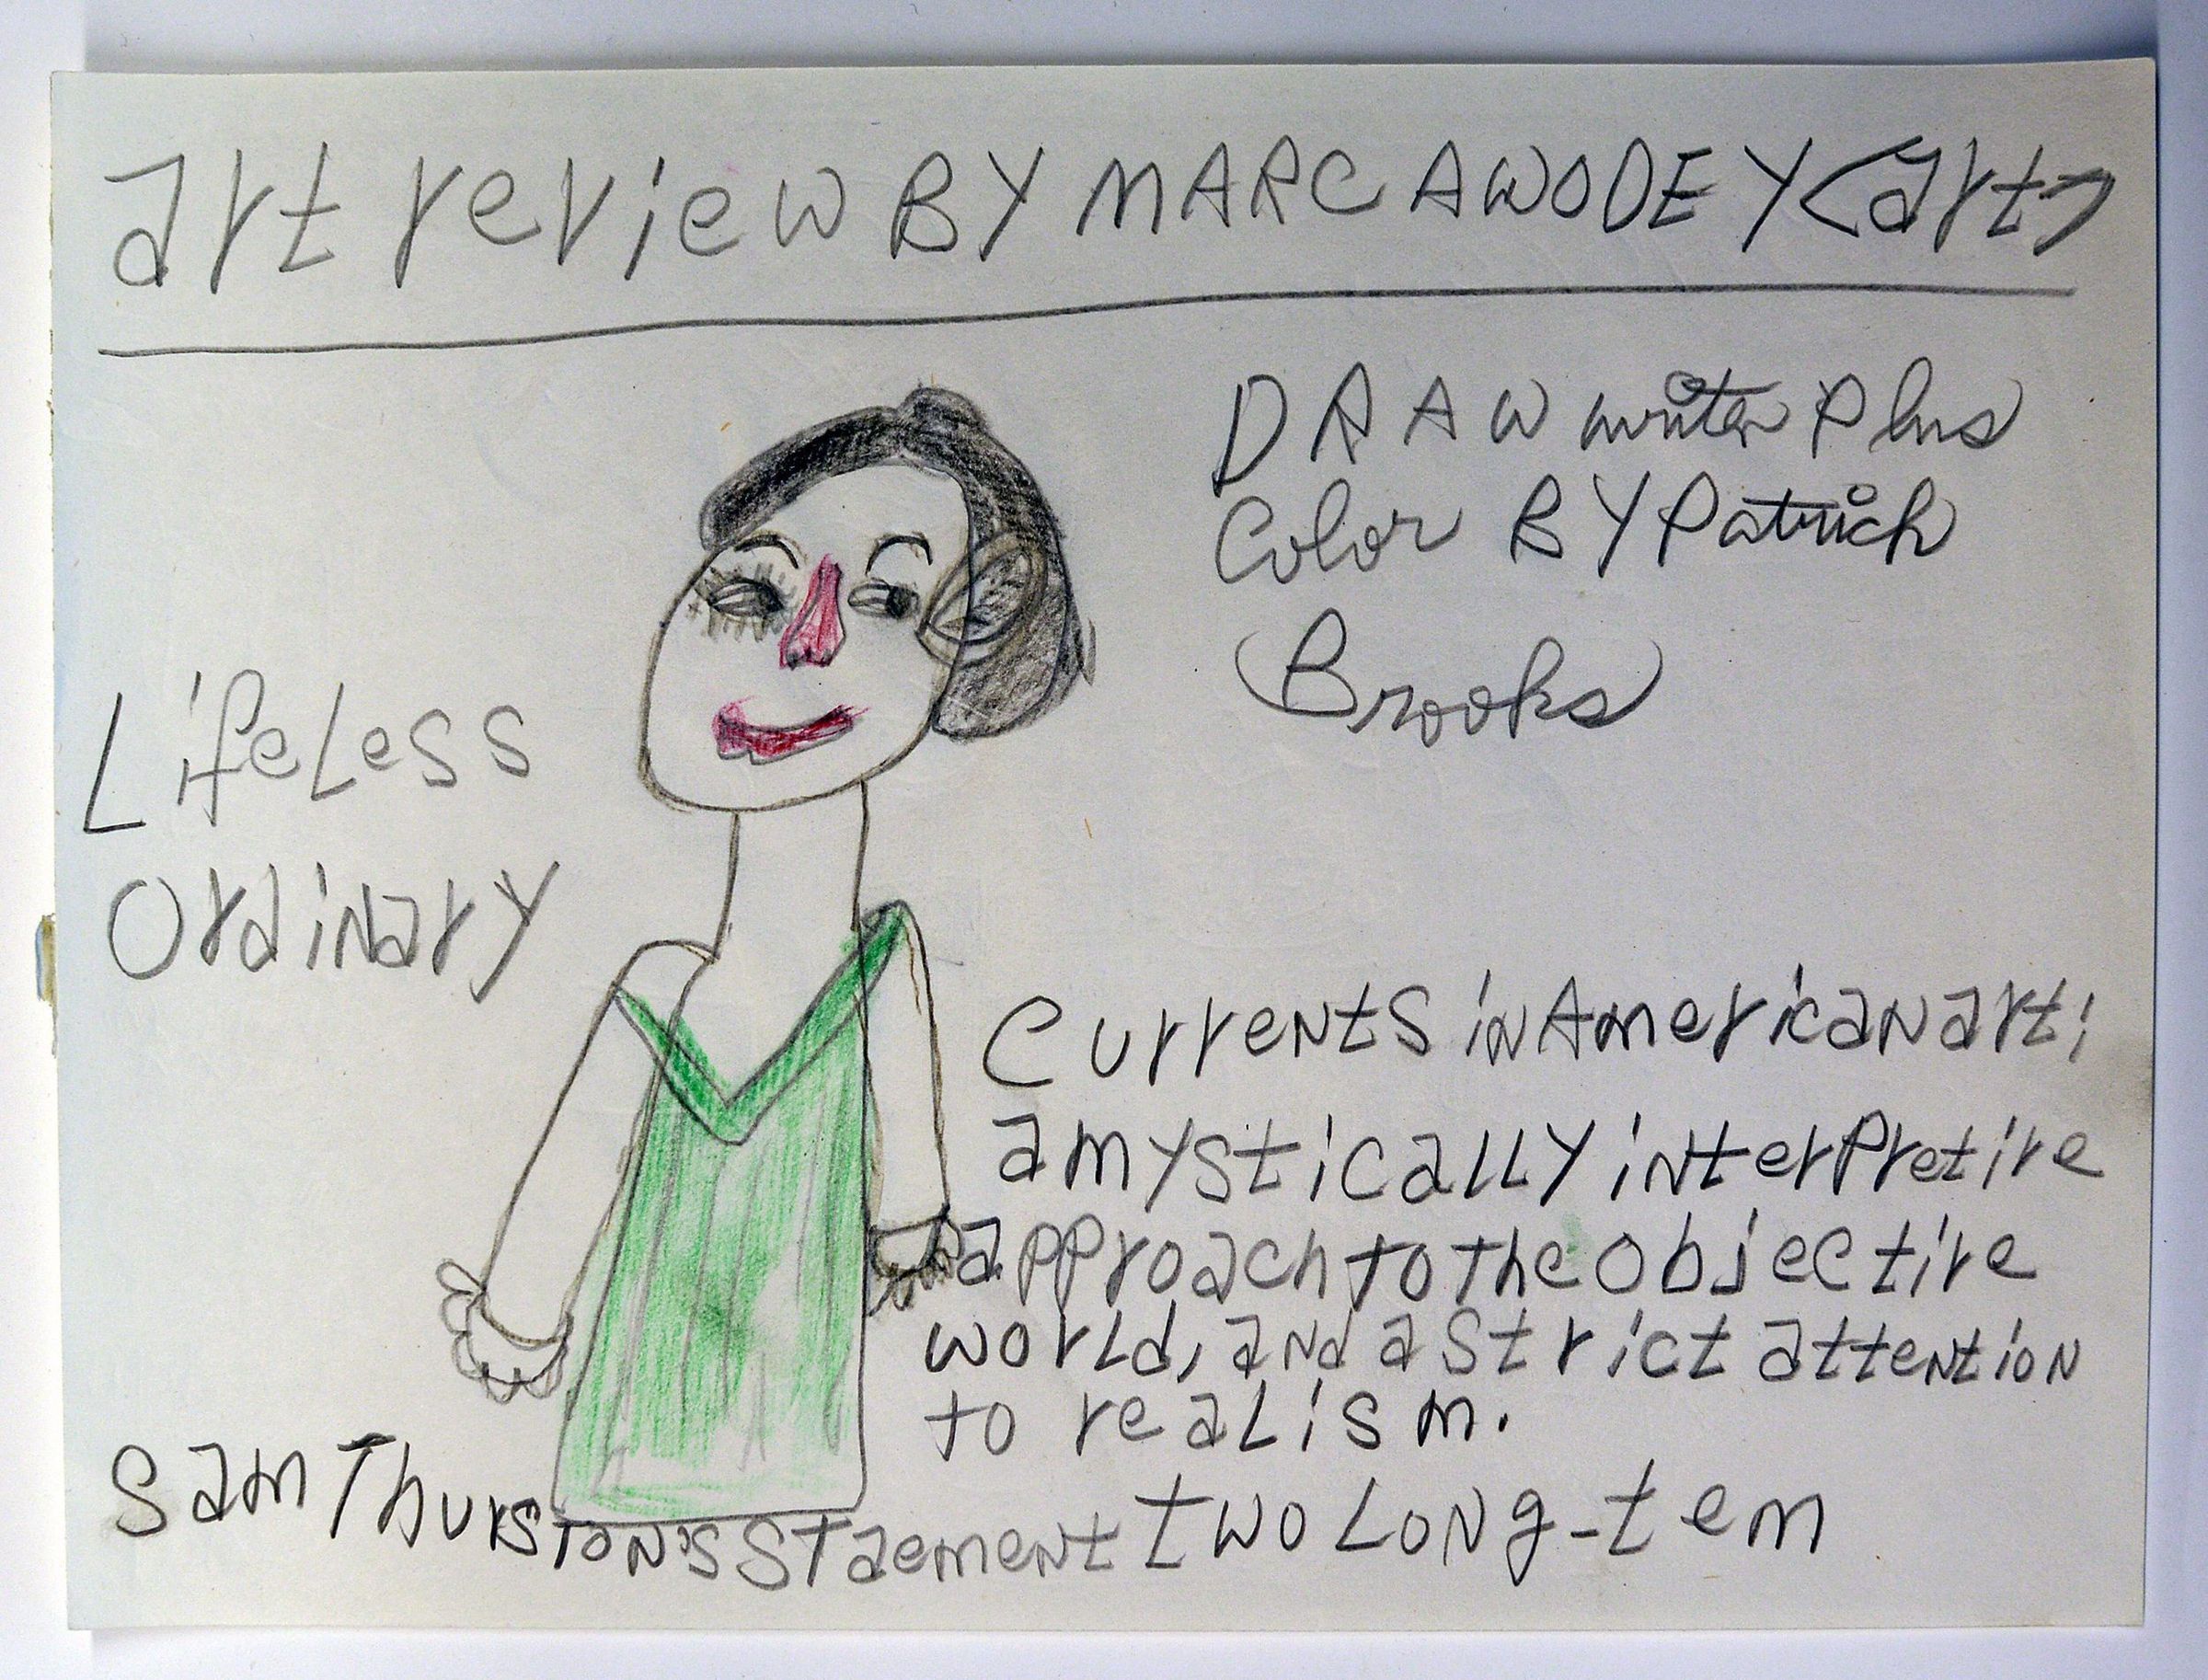 art review BY MARC AWODEY <art>
DRAW writer Plus
Color BY Patrick
Brooks
LifeLess
Ordinary
Currents in American art;
a mystically interpretive
approach to the objective
world, and a strict attention
to realism.
Sam Thurston's Staement two Long-tem